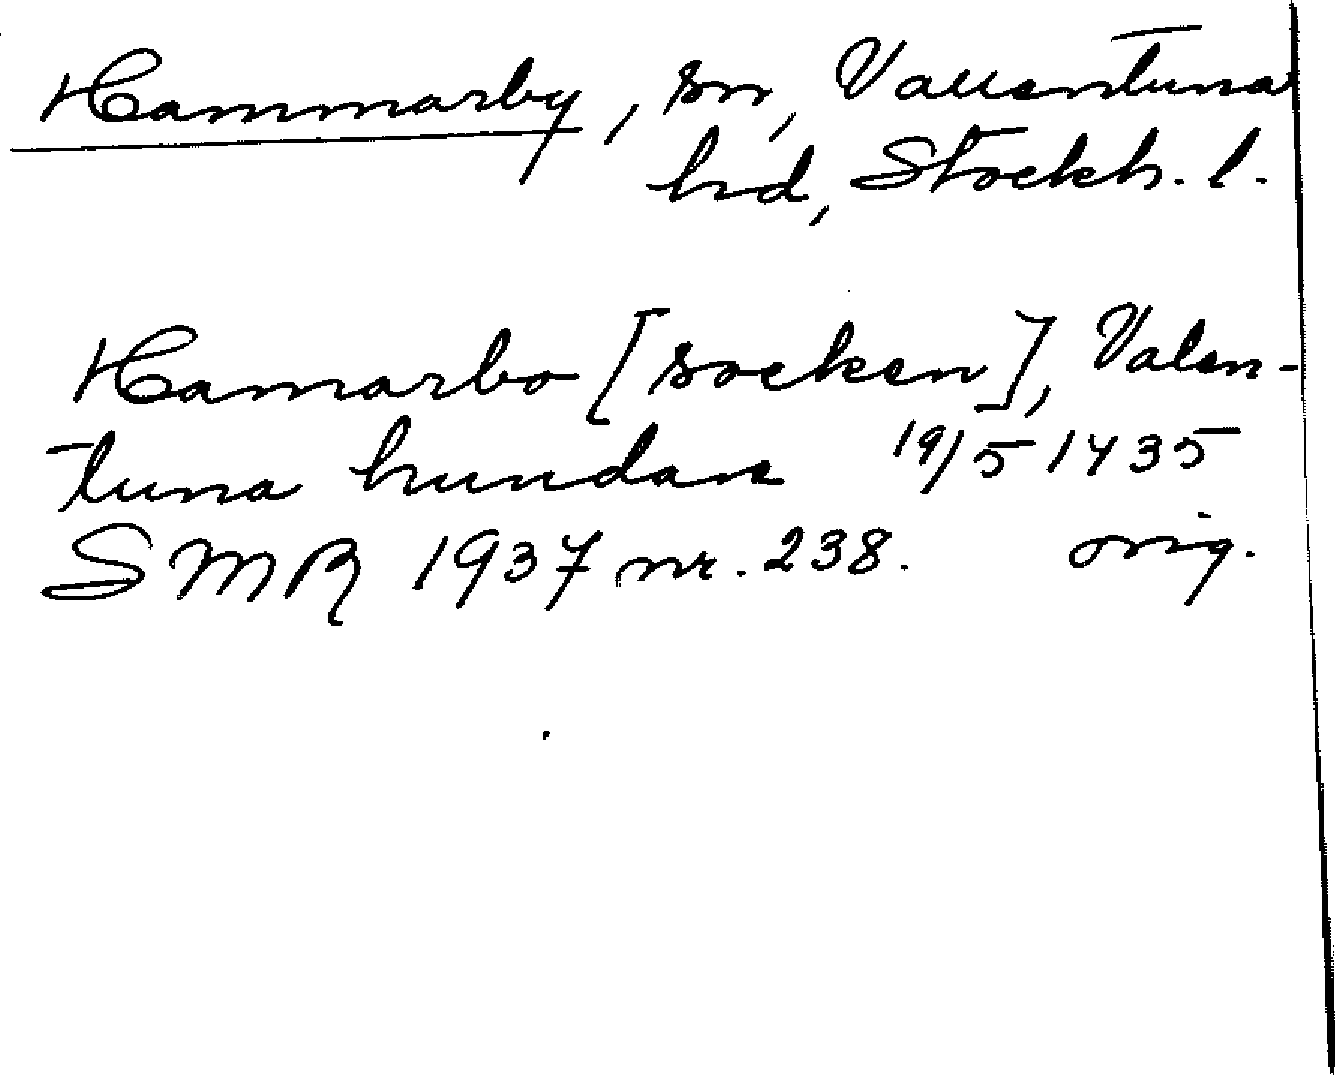 Hammarby, sn, Vallentuna
hd, Stockh. l.
Hamarbo [socken], Valen-
tuna hundare 19/5 1435
SMR 1937 nr. 238. orig.